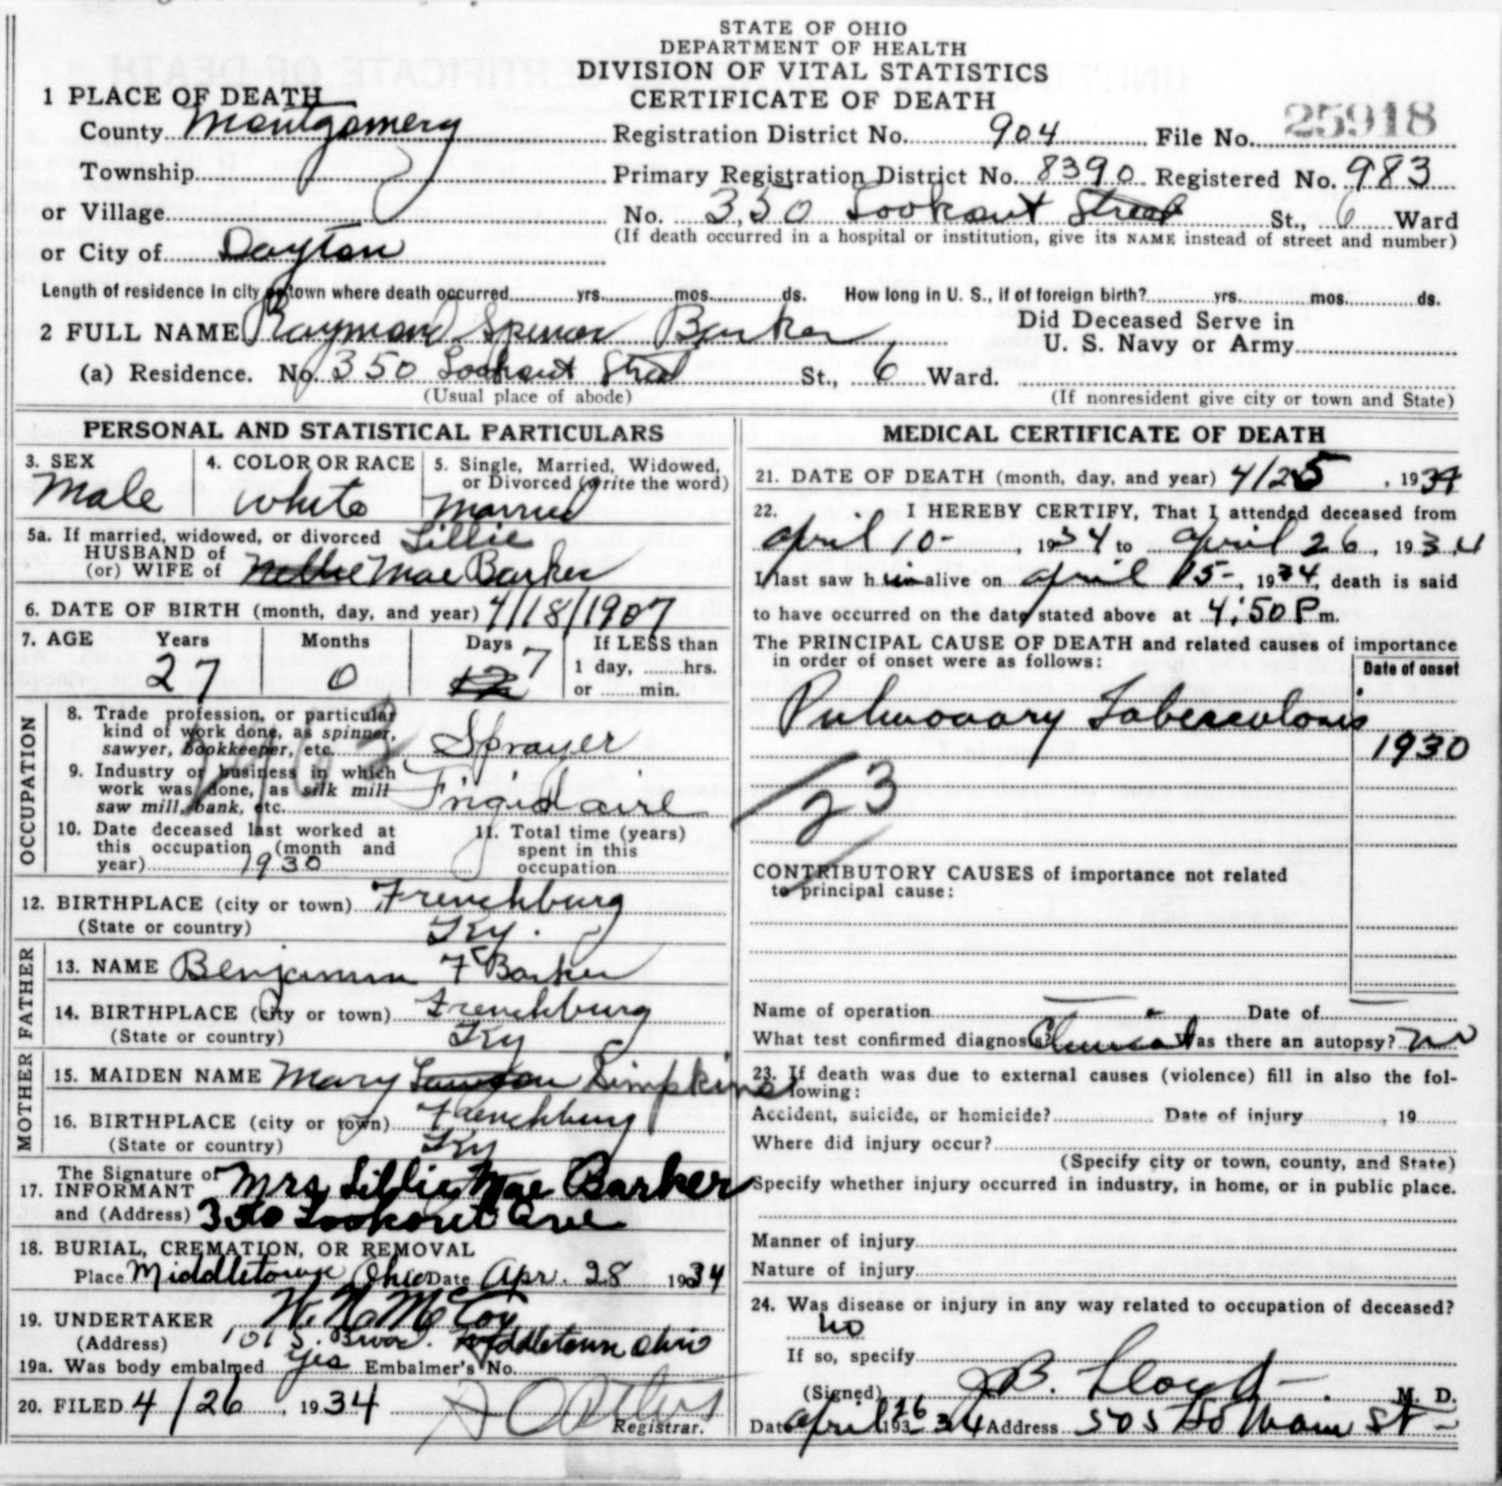 STATE OF OHIO
DEPARTMENT OF HEALTH
DIVISION OF VITAL STATISTICS
CERTIFICATE OF DEATH
1 PLACE OF DEATH
County Montgomery Registration District No. 904 File No. 25918
Township Primary Registration District No. 8390 Registered No. 983
or Village No. 350 Lookout Street St., 6 Ward
(If death occurred in a hospital or institution, give its NAME instead of street and number)
or City of Dayton
Length of residence in city or town where death occurred yrs. mos. ds. How long in U. S., if of foreign birth? yrs. mos. ds.
2 FULL NAME Raymond Spencer Barker Did Deceased Serve in
U. S. Navy or Army
(a) Residence. No. 350 Lookout Street St., 6 Ward.
(Usual place of abode) (If nonresident give city or town and State)
PERSONAL AND STATISTICAL PARTICULARS
3. SEX 4. COLOR OR RACE 5. Single, Married, Widowed,
or Divorced (write the word)
Male White Married
5a. If married, widowed, or divorced Lillie
HUSBAND of
(or) WIFE of Nellie Mae Barker
6. DATE OF BIRTH (month, day, and year) 4/18/1907
7. AGE Years Months Days If LESS than
1 day, hrs.
or min.
27 0 7
8. Trade profession, or particular
kind of work done, as spinner,
sawyer, bookkeeper, etc. Sprayer
9. Industry or business in which
work was done, as silk mill
saw mill, bank, etc. Frigidaire
10. Date deceased last worked at
this occupation (month and
year) 1930
11. Total time (years)
spent in this
occupation
OCCUPATION
12. BIRTHPLACE (city or town) Frenchburg
(State or country) Ky.
FATHER
13. NAME Benjamin F Barker
14. BIRTHPLACE (city or town) Frenchburg
(State or country) Ky
MOTHER
15. MAIDEN NAME Mary Simpkins
16. BIRTHPLACE (city or town) Frenchburg
(State or country) Ky
The Signature of
17. INFORMANT Mrs Lillie Mae Barker
and (Address) 350 Lookout Ave
18. BURIAL, CREMATION, OR REMOVAL
Place Middletown Ohio Date Apr. 28 1934
19. UNDERTAKER W. N. McCoy
(Address) 101 S. Broad. Middletown Ohio
19a. Was body embalmed yes Embalmer's No.
20. FILED 4/26, 1934
Registrar.
MEDICAL CERTIFICATE OF DEATH
21. DATE OF DEATH (month, day, and year) 4/25, 1934
22. I HEREBY CERTIFY, That I attended deceased from
April 10-, 1934 to April 26, 1934
I last saw him alive on April 15-, 1934, death is said
to have occurred on the date stated above at 4:50 P m.
The PRINCIPAL CAUSE OF DEATH and related causes of importance
in order of onset were as follows:
Date of onset
Pulmonary Tuberculosis
1930
23
CONTRIBUTORY CAUSES of importance not related
to principal cause:
Name of operation Date of
What test confirmed diagnosis? Clinical Was there an autopsy? no
23. If death was due to external causes (violence) fill in also the fol-
lowing:
Accident, suicide, or homicide? Date of injury , 19
Where did injury occur?
(Specify city or town, county, and State)
Specify whether injury occurred in industry, in home, or in public place.
Manner of injury
Nature of injury
24. Was disease or injury in any way related to occupation of deceased?
no
If so, specify
(Signed) J B. Lloyd M. D.
Date April 26 1934 Address 505 So Main St